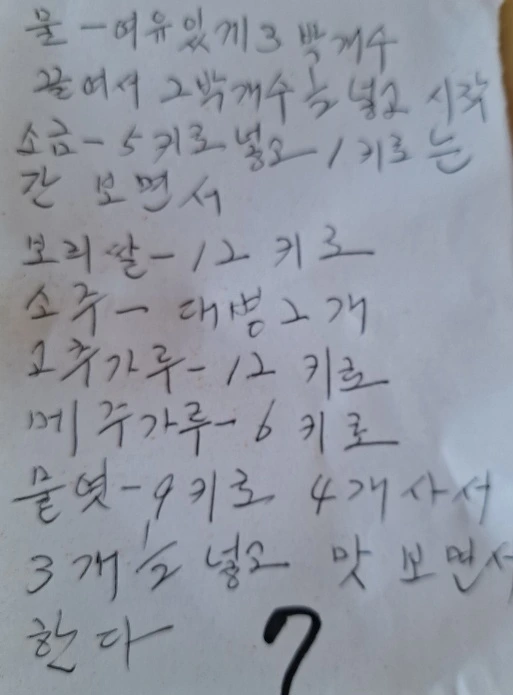 물 - 여유있게 3 박게스
끓여서 2박게스 1/2 넣고 시작
소금 - 5키로 넣고 1키로는
간 보면서
보리쌀 - 12 키로
소주 - 대병 2개
고추가루 - 12 키로
메주가루 - 6 키로
물엿 - 9키로 4개 사서
3개 1/2 넣고 맛 보면서
한다
7